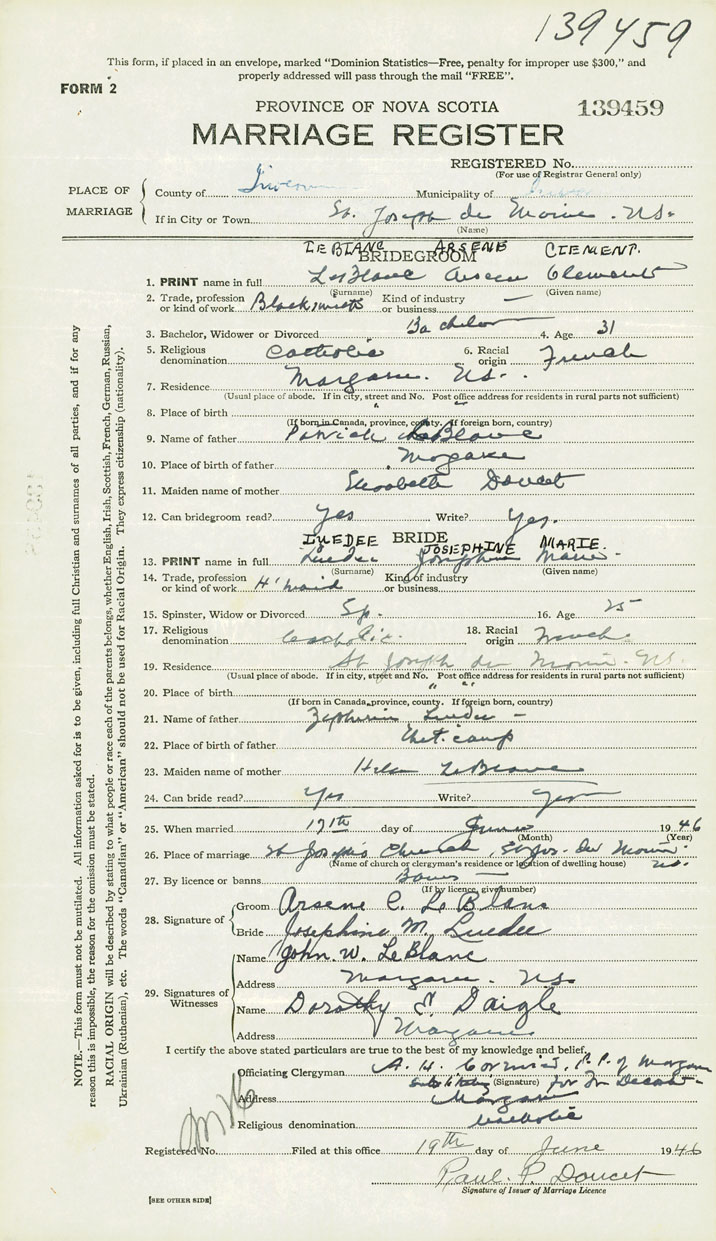 139459
This form, if placed in an envelope, marked "Dominion Statistics—Free, penalty for improper use $300," and
properly addressed will pass through the mail "FREE".
FORM 2
PROVINCE OF NOVA SCOTIA 139459
MARRIAGE REGISTER
REGISTERED No.
(For use of Registrar General only)
PLACE OF MARRIAGE
County of Municipality of
If in City or Town St. Joseph du Moine. N.S.
(Name)
LEBLANC ARSENE CLEMENT.
BRIDEGROOM
1. PRINT name in full LeBlanc Arsene Clement
(Surname) (Given name)
2. Trade, profession or kind of work Blacksmith Kind of industry or business —
3. Bachelor, Widower or Divorced Bachelor 4. Age 31
5. Religious denomination Catholic 6. Racial origin French
7. Residence Margaree. N.S.
(Usual place of abode. If in city, street and No. Post office address for residents in rural parts not sufficient)
8. Place of birth " "
(If born in Canada, province, county. If foreign born, country)
9. Name of father Patrick LeBlanc
10. Place of birth of father
11. Maiden name of mother Doucet
12. Can bridegroom read? Yes Write? Yes.
BRIDE
LUEDEE JOSEPHINE MARIE.
13. PRINT name in full Luedee Josephine Marie
(Surname) (Given name)
14. Trade, profession or kind of work H'maid Kind of industry or business
15. Spinster, Widow or Divorced Sp. 16. Age 25
17. Religious denomination Catholic. 18. Racial origin French
19. Residence St Joseph du Moine. N.S.
(Usual place of abode. If in city, street and No. Post office address for residents in rural parts not sufficient)
20. Place of birth " "
(If born in Canada, province, county. If foreign born, country)
21. Name of father Luedee —
22. Place of birth of father
23. Maiden name of mother Helen LeBlanc
24. Can bride read? Yes Write? Yes
25. When married 17th day of June 1946
(Month) (Year)
26. Place of marriage St Joseph's Church, St Jos. du Moine N.S.
(Name of church or clergyman's residence or location of dwelling house)
27. By licence or banns Banns —
(If by licence, give number)
28. Signature of
Groom Arsene C. LeBlanc
Bride Josephine M. Luedee
29. Signatures of Witnesses
Name John. W. LeBlanc
Address Margaree. N.S.
Name Dorothy E. Daigle
Address Margaree
I certify the above stated particulars are true to the best of my knowledge and belief.
Officiating Clergyman A. H. Cormier, P.P. of Margaree
(Signature) for
Address Margaree
Religious denomination Catholic
Registered No. Filed at this office 19th day of June 1946
Paul. P. Doucet
Signature of Issuer of Marriage Licence
[SEE OTHER SIDE]
NOTE.—This form must not be mutilated. All information asked for is to be given, including full Christian and surnames of all parties, and if for any
reason this is impossible, the reason for the omission must be stated.
RACIAL ORIGIN will be described by stating to what people or race each of the parents belongs, whether English, Irish, Scottish, French, German, Russian,
Ukrainian (Ruthenian), etc. The words "Canadian" or "American" should not be used for Racial Origin. They express citizenship (nationality).